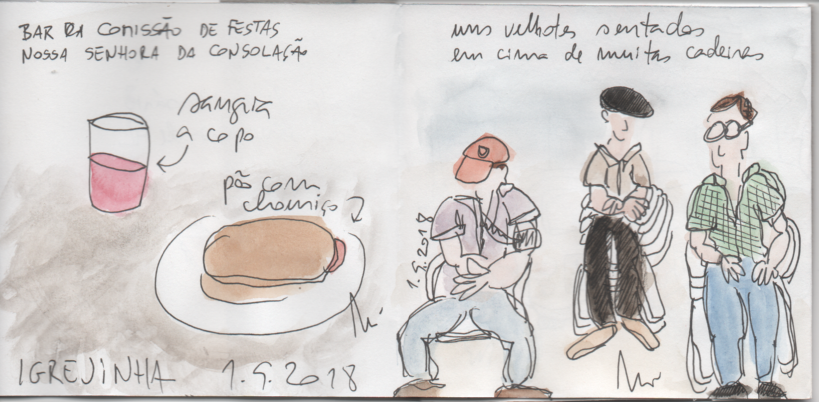 BAR DA COMISSÃO DE FESTAS
NOSSA SENHORA DA CONSOLAÇÃO
sangria
a copo
pão com
chouriço
IGREJINHA 1.9.2018
uns velhotes sentados
em cima de muitas cadeiras
1.9.2018